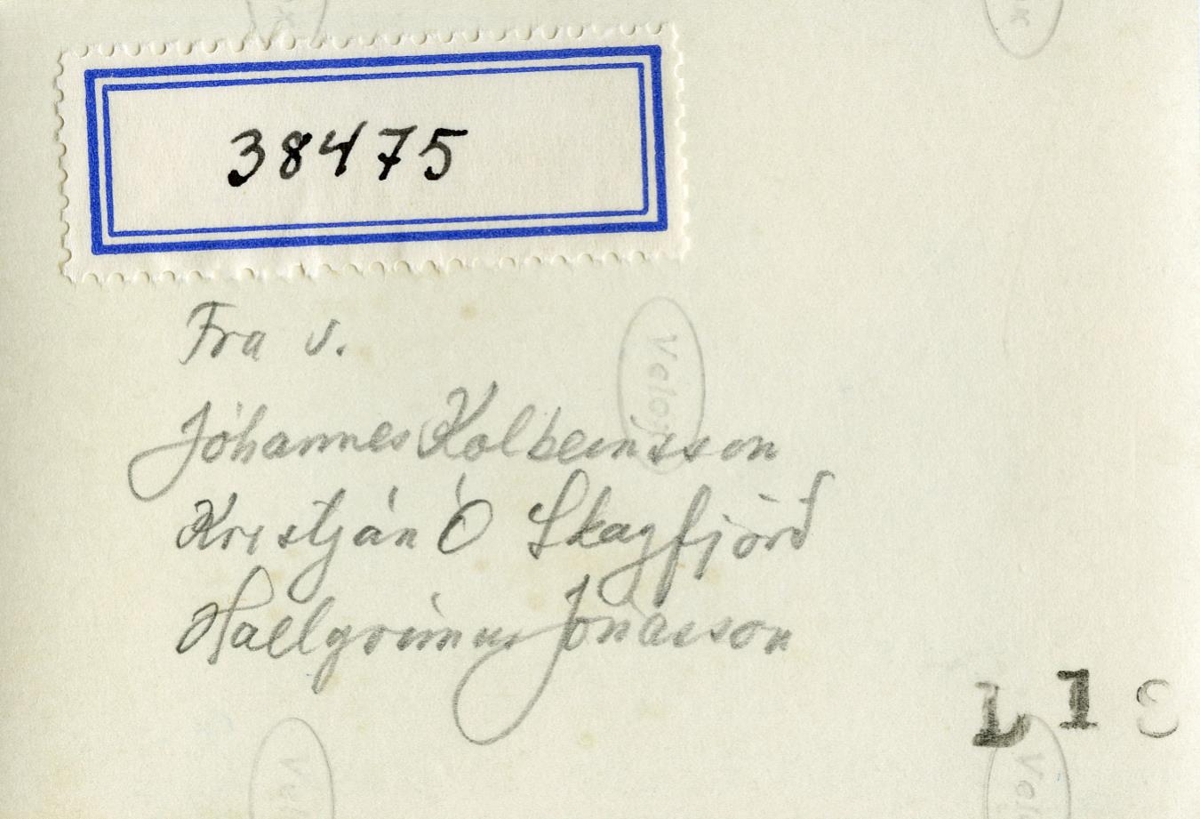 38475
Fra v.
Jóhannes Kolbeinsson
Kristján Ó Skagfjörð
Hallgrímur Jónasson
L 1 S
Velox